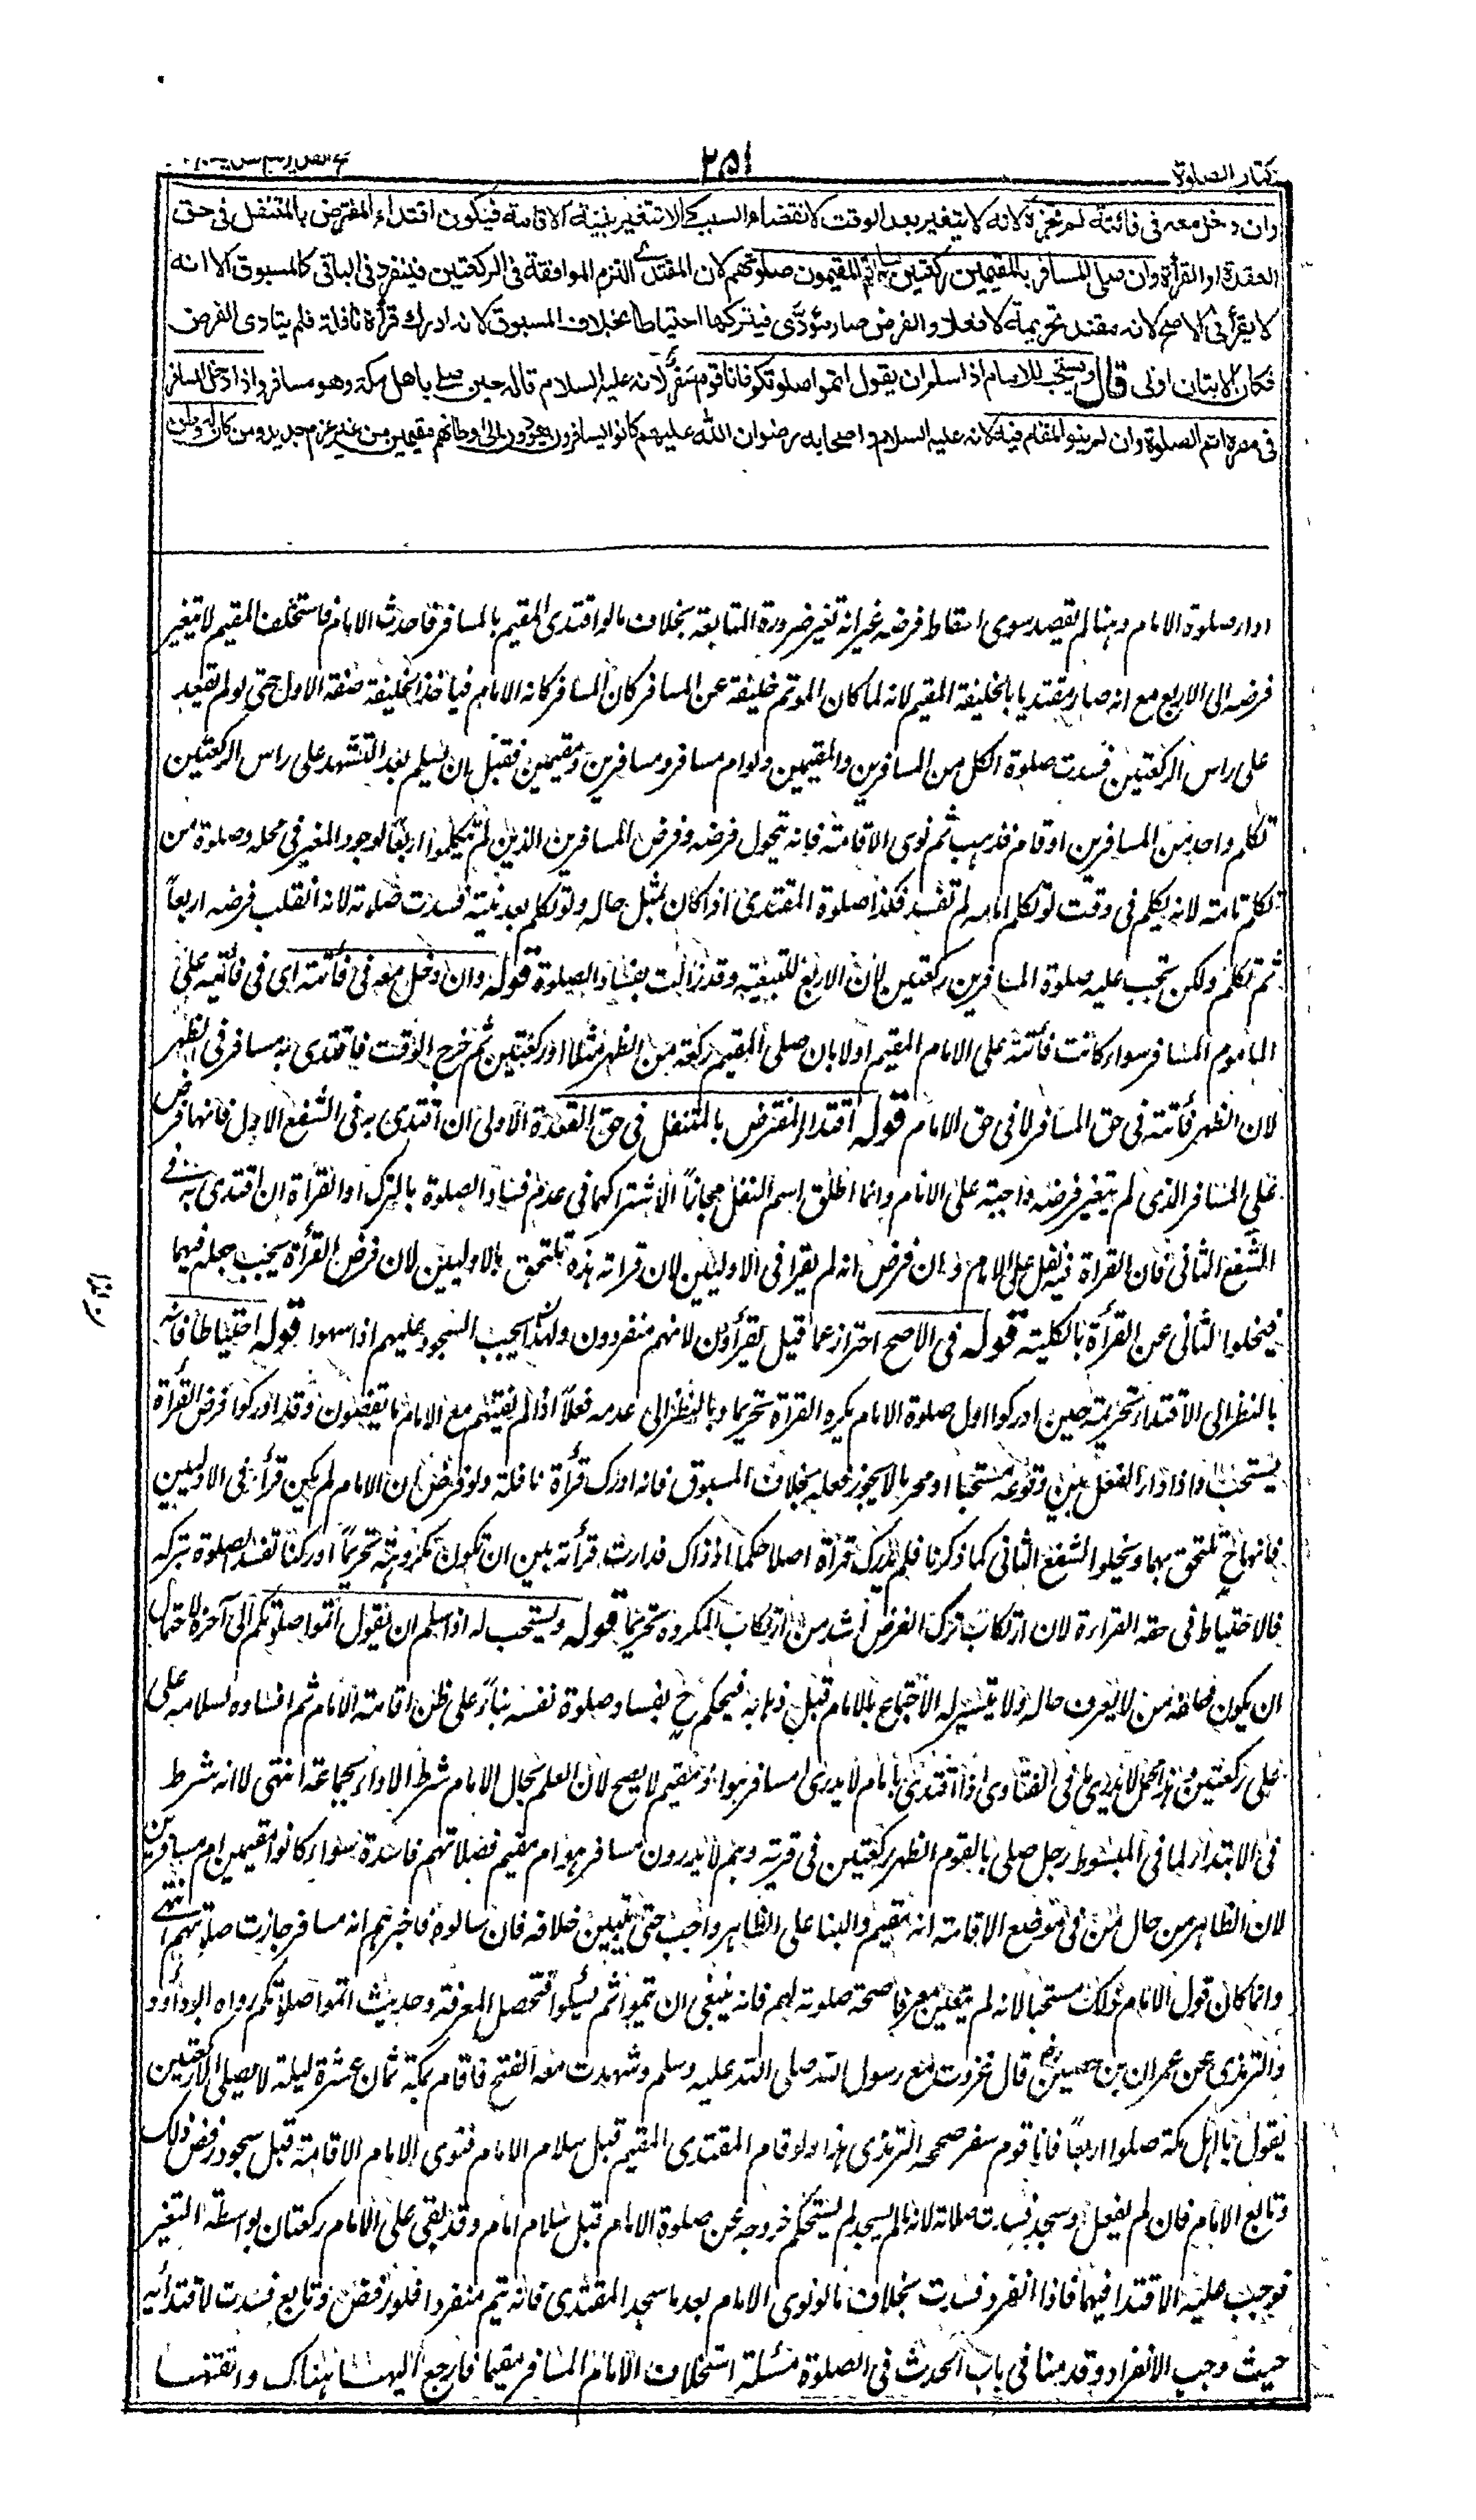 كتاب الصلوة
٢٥١
وان دخل معه فى فائتة لم تجزه لانه لا يتغير بعد الوقت لانقضاء السبب كما لا يتغير بنية الاقامة فيكون اقتداء المفترض بالمتنفل فى حق
القعدة او القراءة وان صلى المسافر بالمقيمين ركعتين سلم واتم المقيمون صلوتهم لان المقتدى التزم الموافقة فى الركعتين فينفرد فى الباقى كالمسبوق الا انه
لا يقرأ فى الاصح لانه مقتد تحريمة لا فعلا والفرض صار مؤدى فيتركها احتياطا بخلاف المسبوق لانه ادرك قرأة نافلة فلم يتادى الفرض
فكان الاتيان اولى قال ويستحب للامام اذا سلم ان يقول اتموا صلوتكم فانا قوم سفر لانه عليه السلام قاله حين صلى باهل مكة وهو مسافر واذا دخل المسافر
فى مصره اتم الصلوة وان لم ينو المقام فيه لانه عليه السلام واصحابه رضوان الله عليهم كانوا يسافرون ويعودون الى اوطانهم مقيمين من غير عزم جديد ومن كان له وطن
اداء صلوة الامام وهنا لم يقصد سوى اسقاط فرضه غير انه تغير ضرورة المتابعة بخلاف ما لو اقتدى المقيم بالمسافر فاحدث الامام فاستخلف المقيم لا يتغير
فرضه الى الاربع مع انه صار مقتديا بالخليفة المقيم لانه لما كان الموتم خليفة عن المسافر كان المسافر كانه الامام فياخذ الخليفة صفة الاول حتى لو لم يقعد
على راس الركعتين فسدت صلوة الكل من المسافرين والمقيمين ولو ام مسافر مسافرين ومقيمين فقبل ان يسلم بعد التشهد على راس الركعتين
تكلم واحد من المسافرين او قام فذهب ثم نوى الاقامة فانه يتحول فرضه وفرض المسافرين الذين لم يتكلموا اربعا لوجود المغير فى محله وصلوة من
تكلم تامة لانه تكلم فى وقت لو تكلم امامه لم تفسد فكذا صلوة المقتدى اذا كان بمثل حاله ولو تكلم بعد نيته فسدت صلاته لانه انقلب فرضه اربعاً
ثم تكلم ولكن تجب عليه صلوة المسافرين ركعتين لان الاربع للتبعية وقد زالت بفساد الصلوة قوله وان دخل معه فى فائتة اى فى فائتة على
الماموم المسافر سواء كانت فائتة على الامام المقيم اولا بان صلى المقيم ركعة من الظهر مثلا او ركعتين ثم خرج الوقت فاقتدى به مسافر فى الظهر
لان الظهر فائتة فى حق المسافر لا فى حق الامام قوله اقتداء المفترض بالمتنفل فى حق القعدة الاولى ان اقتدى به فى الشفع الاول فانها فرض
على المسافر الذى لم يتغير فرضه واجبة على الامام وانما اطلق اسم النفل مجازاً لاشتراكهما فى عدم فساد الصلوة بالترك او القرأة ان اقتدى به فى
الشفع الثانى فان القراة فيه نفل على الامام وان فرض انه لم يقرا فى الاوليين لان قراته هذه تلتحق بالاوليين لان فرض القرأة يجب جعله فيهما
فيخلوا الثانى عن القرأة بالكلية قوله فى الاصح احتراز عما قيل يقرأون لانهم منفردون ولهذا يجب السجود عليهم اذا سهوا قوله احتياطا فانه
بالنظر الى الاقتداء تحريمة حين ادركوا اول صلوة الامام يكره القرأة تحريما وبالنظر الى عدمه فعلاً اذا لم يفتهم مع الامام ما يقضون وقد ادركوا فرض القرأة
يستحب واذا دار الفعل بين وقوعه مستحبا او محرما لا يجوز فعله بخلاف المسبوق فانه ادرك قرأة نافلة ولو فرض ان الامام لم يكن قرأ فى الاوليين
فانها ح تلتحق بهما ويخلو الشفع الثانى كما ذكرنا فلم يدرك قرأة اصلا حكما اذ ذاك فدارت قرأته بين ان تكون مكروهة تحريماً او ركنا تفسد الصلوة بتركه
فالاحتياط فى حقه القراءة لان ارتكاب ترك الفرض اشد من ارتكاب المكروه تحريما قوله ويستحب له اذا سلم ان يقول اتموا صلوتكم الى آخره لاحتمال
ان يكون خلفه من لا يعرف حاله ولا يتيسر له الاجتماع بالامام قبل ذهابه فيحكم ح بفساد صلوة نفسه بناءً على ظن اقامة الامام ثم افساده بسلامه على
على ركعتين وهذا محمل ما فى الفتاوى اذا اقتدى بامام لا يدرى امسافر هو او مقيم لا يصح لان العلم بحال الامام شرط الاداء بجماعة انتهى لا انه شرط
فى الابتداء لما فى المبسوط رجل صلى بالقوم الظهر ركعتين فى قرية وهم لا يدرون مسافر هو ام مقيم فصلاتهم فاسدة سواء كانوا مقيمين ام مسافرين
لان الظاهر من حال من فى موضع الاقامة انه مقيم والبناء على الظاهر واجب حتى يتبين خلافه فان سالوه فاخبرهم انه مسافر جازت صلوتهم انتهى
وانما كان قول الامام ذلك مستحبا لانه لم يتعين معرفا صحة صلوته لهم فانه ينبغى ان يتموا ثم يسئلوا فتحصل المعرفة وحديث اتموا صلاتكم رواه ابوداؤد
والترمذى عن عمران بن حصين رض قال غزوت مع رسول الله صلى الله عليه وسلم وشهدت معه الفتح فاقام بمكة ثمان عشرة ليلة لا يصلى الا ركعتين
يقول يا اهل مكة صلوا اربعاً فانا قوم سفر صححه الترمذى هذا ولو قام المقتدى المقيم قبل سلام الامام فنوى الامام الاقامة قبل سجوده رفض ذلك
وتابع الامام فان لم يفعل وسجد فسدت صلاته لانه ما لم يسجد لم يستحكم خروجه عن صلوة الامام قبل سلام الامام وقد بقى على الامام ركعتان بواسطة التغير
فوجب عليه الاقتدا فيهما فاذا انفرد فسدت بخلاف ما لو نوى الامام بعد ما سجد المقتدى فانه يتم منفردا فلو رفض وتابع فسدت لاقتدائه
حيث وجب الانفراد وقدمنا فى باب الحدث فى الصلوة مسئلة استخلاف الامام المسافر مقيما فارجع اليها هناك واتقنها